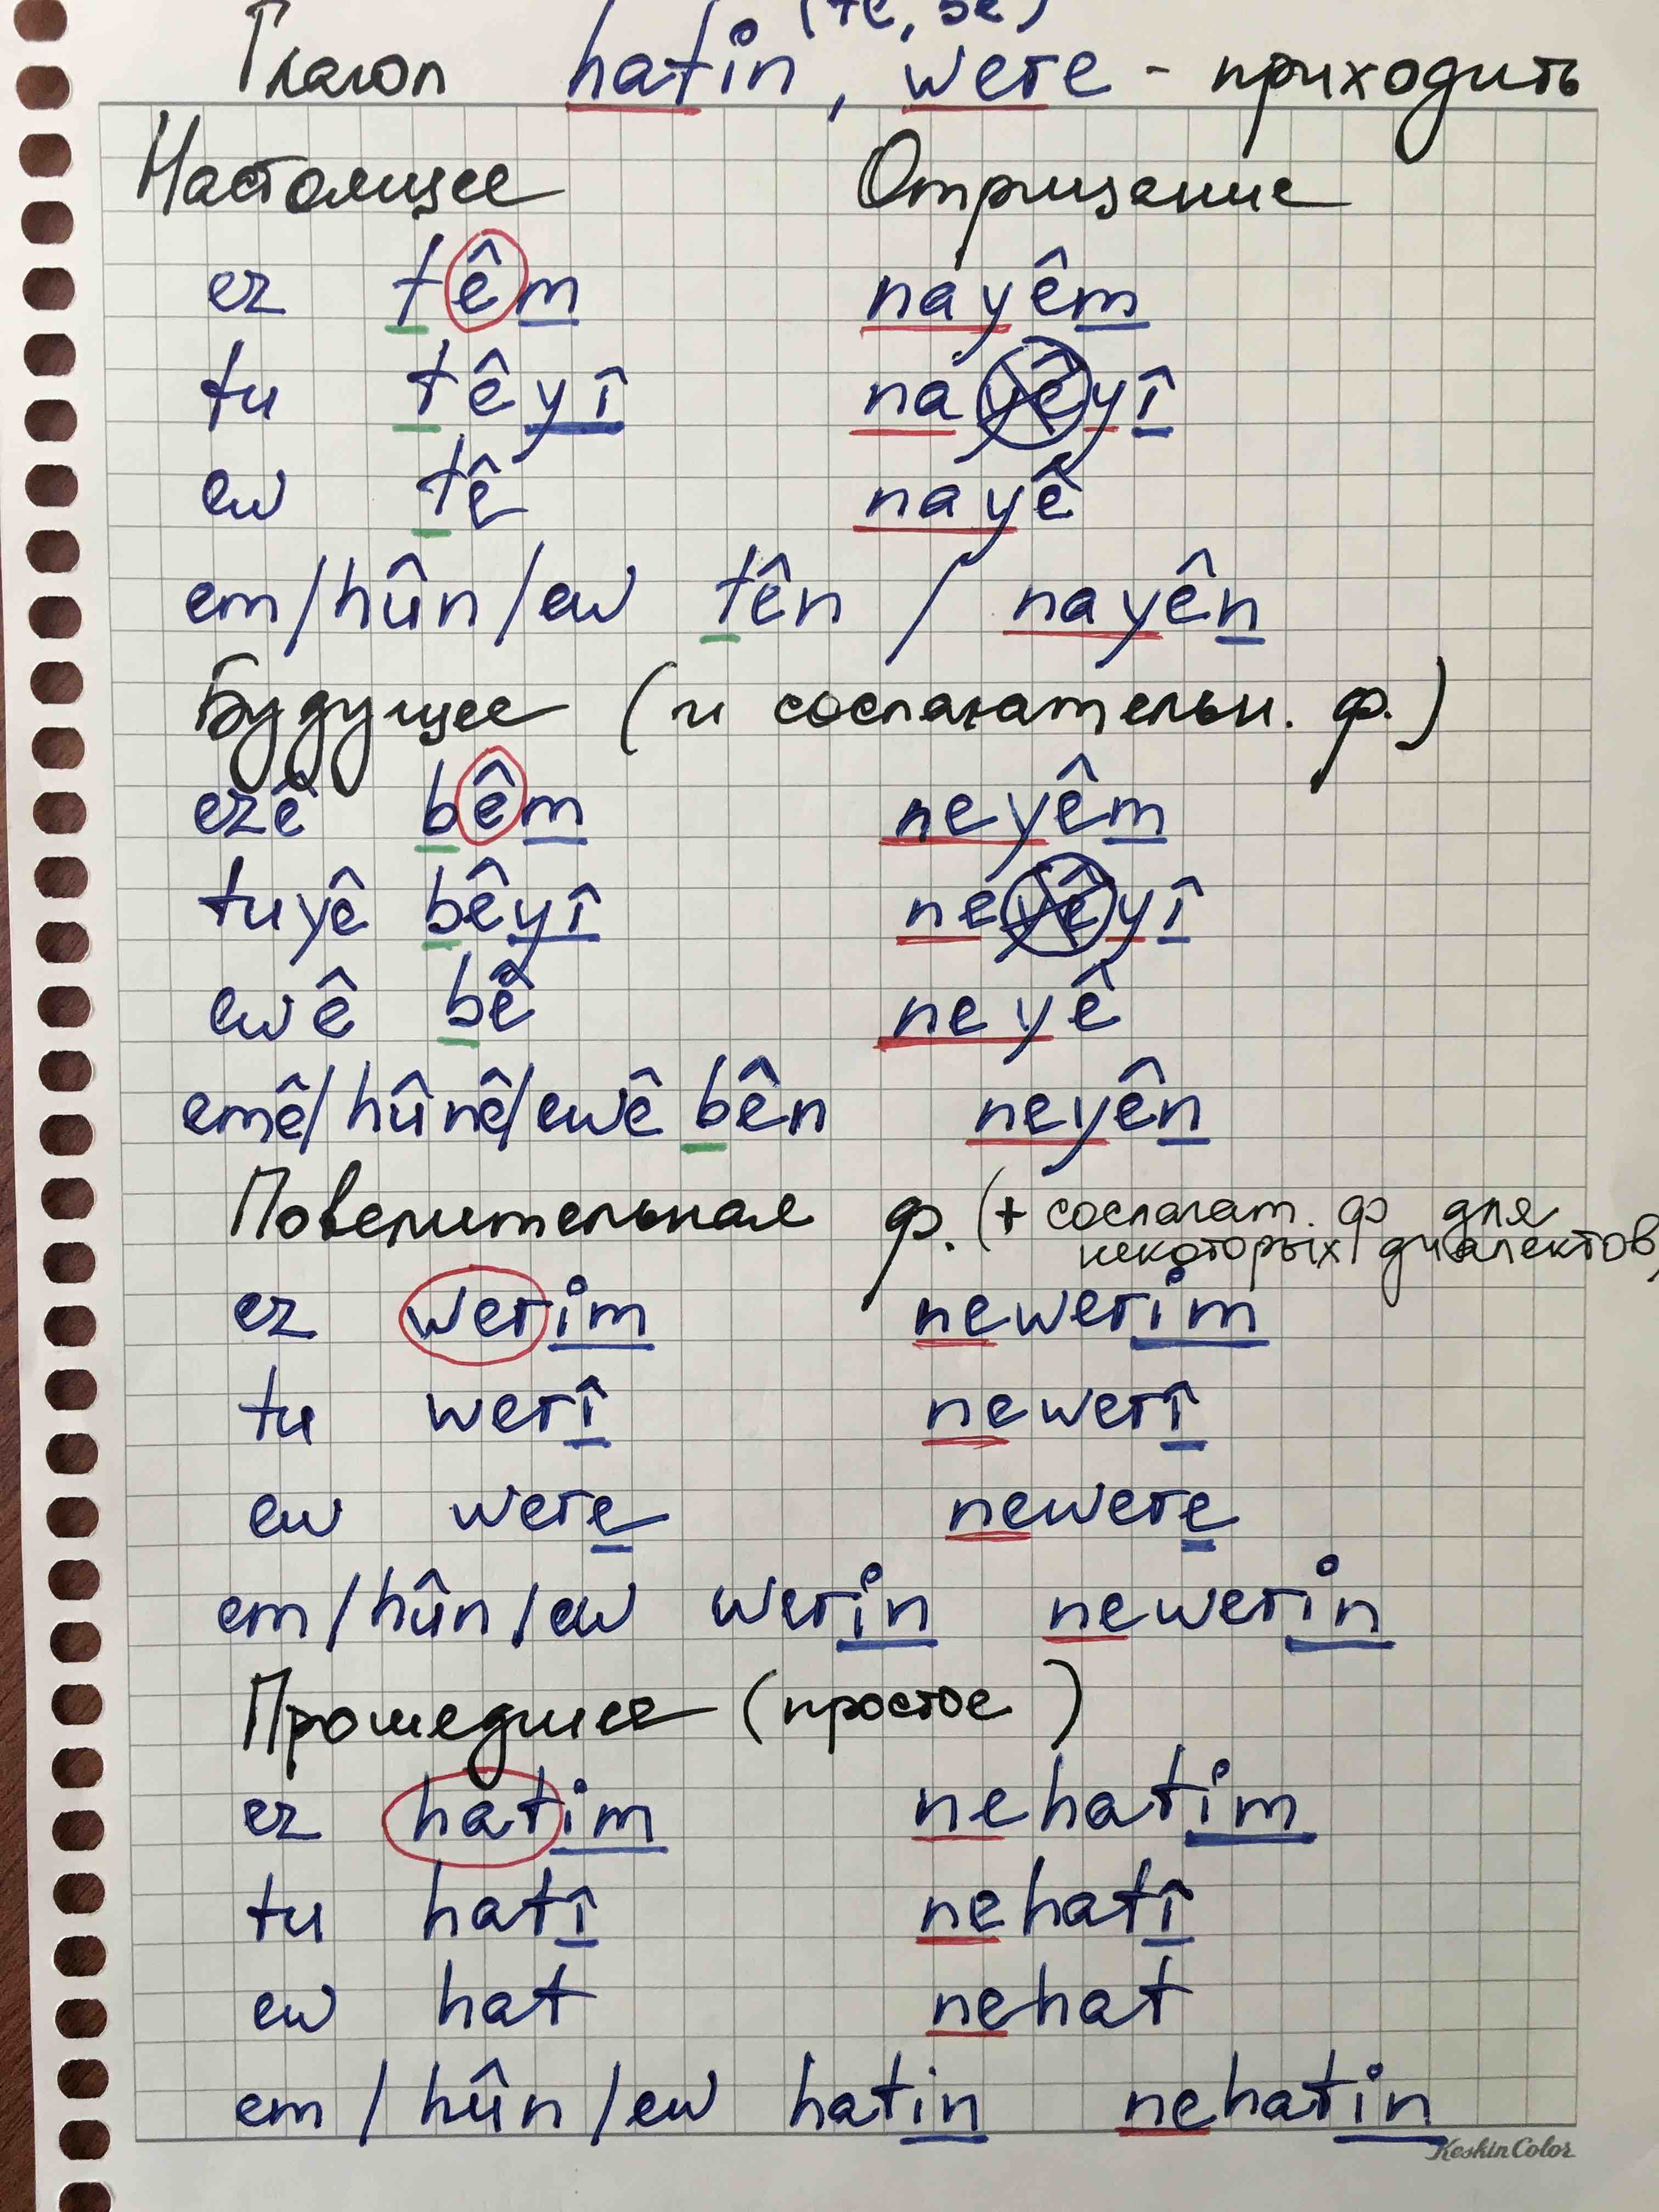 (tê, bê)
Глагол hatin, were - приходить
Настоящее Отрицание
ez têm nayêm
tu têyî nayêyî
ew tê nayê
em/hûn/ew tên / nayên
Будущее (и сослагательн. ф.)
ezê bêm neyêm
tuyê bêyî neyêyî
ewê bê neyê
emê/hûnê/ewê bên neyên
Повелительная ф. (+ сослагат. ф для
некоторых диалектов)
ez werim newerim
tu werî newerî
ew were newere
em/hûn/ew werin newerin
Прошедшее (простое)
ez hatim nehatim
tu hatî nehatî
ew hat nehat
em/hûn/ew hatin nehatin
Keskin Color